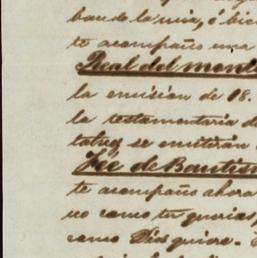 bando la mia, é bie
te acompaño una
Real del monte
la emision de 18.
la testamentaria d
se emitirán
Fée de Bautis
te acompaño ahora
no como tu querias,
como Dios quiere.